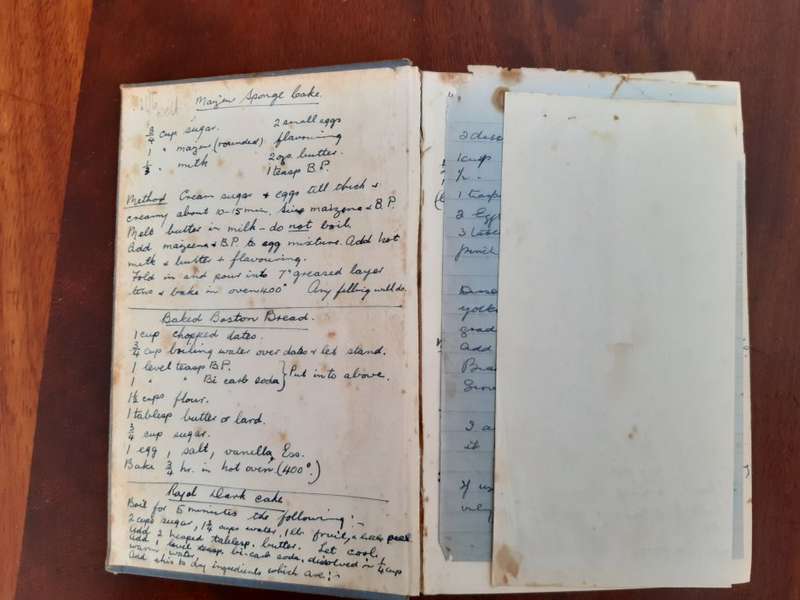 Maizen Sponge Cake.
3/4 cup sugar. 2 small eggs
1 " maizen (rounded) flavouring
1/3 " milk 2 ozs butter.
1 teasp B.P.
Method Cream sugar & eggs till thick &
creamy about 10-15 min. maizena & B.P.
Melt butter in milk - do not boil.
Add maizena & B.P. to egg mixture. Add hot
milk & butter & flavouring.
Fold in and pour into 7" greased layer
tins & bake in oven 400° Any filling will do.
Baked Boston Bread.
1 cup chopped dates.
3/4 cup boiling water over dates & let stand.
1 level teasp B.P.
1 " " Bi carb soda } Put into above.
cups flour.
1 tablesp butter or lard.
3/4 cup sugar.
1 egg, salt, vanilla Ess.
Bake 3/4 hr. in hot oven (400°.)
Royal Dark Cake
Boil for 5 minutes the following:-
2 cups sugar, 1 1/4 cups water, 1 lb. fruit, & little peel
Add 2 heaped tablesp. butter. Let cool.
Add 1 level teasp bi-carb soda, dissolved in 1/4 cup
warm water.
Add this to dry ingredients which are:-
1 cup
2 Eggs
pinch
Add
it
If
only